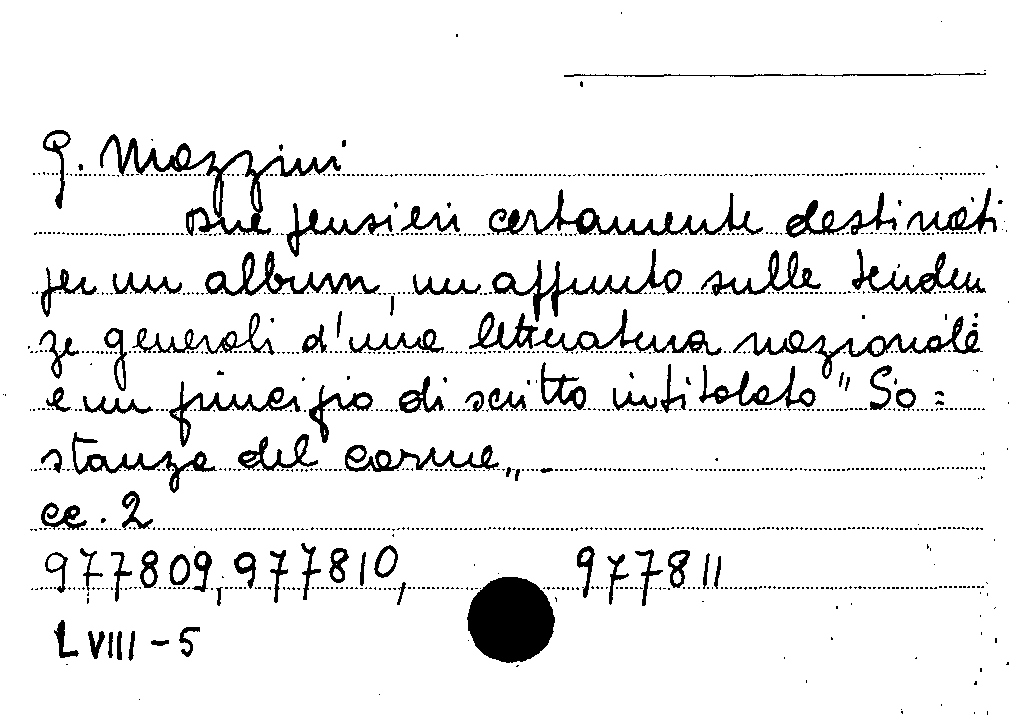 G. Mazzini
Due pensieri certamente destinati
per un album, un appunto sulle tenden
ze generali d'una letteratura nazionale
e un principio di scritto intitolato "So=
stanza del carme„.
cc. 2
977809, 977810, 977811
L VIII - 5